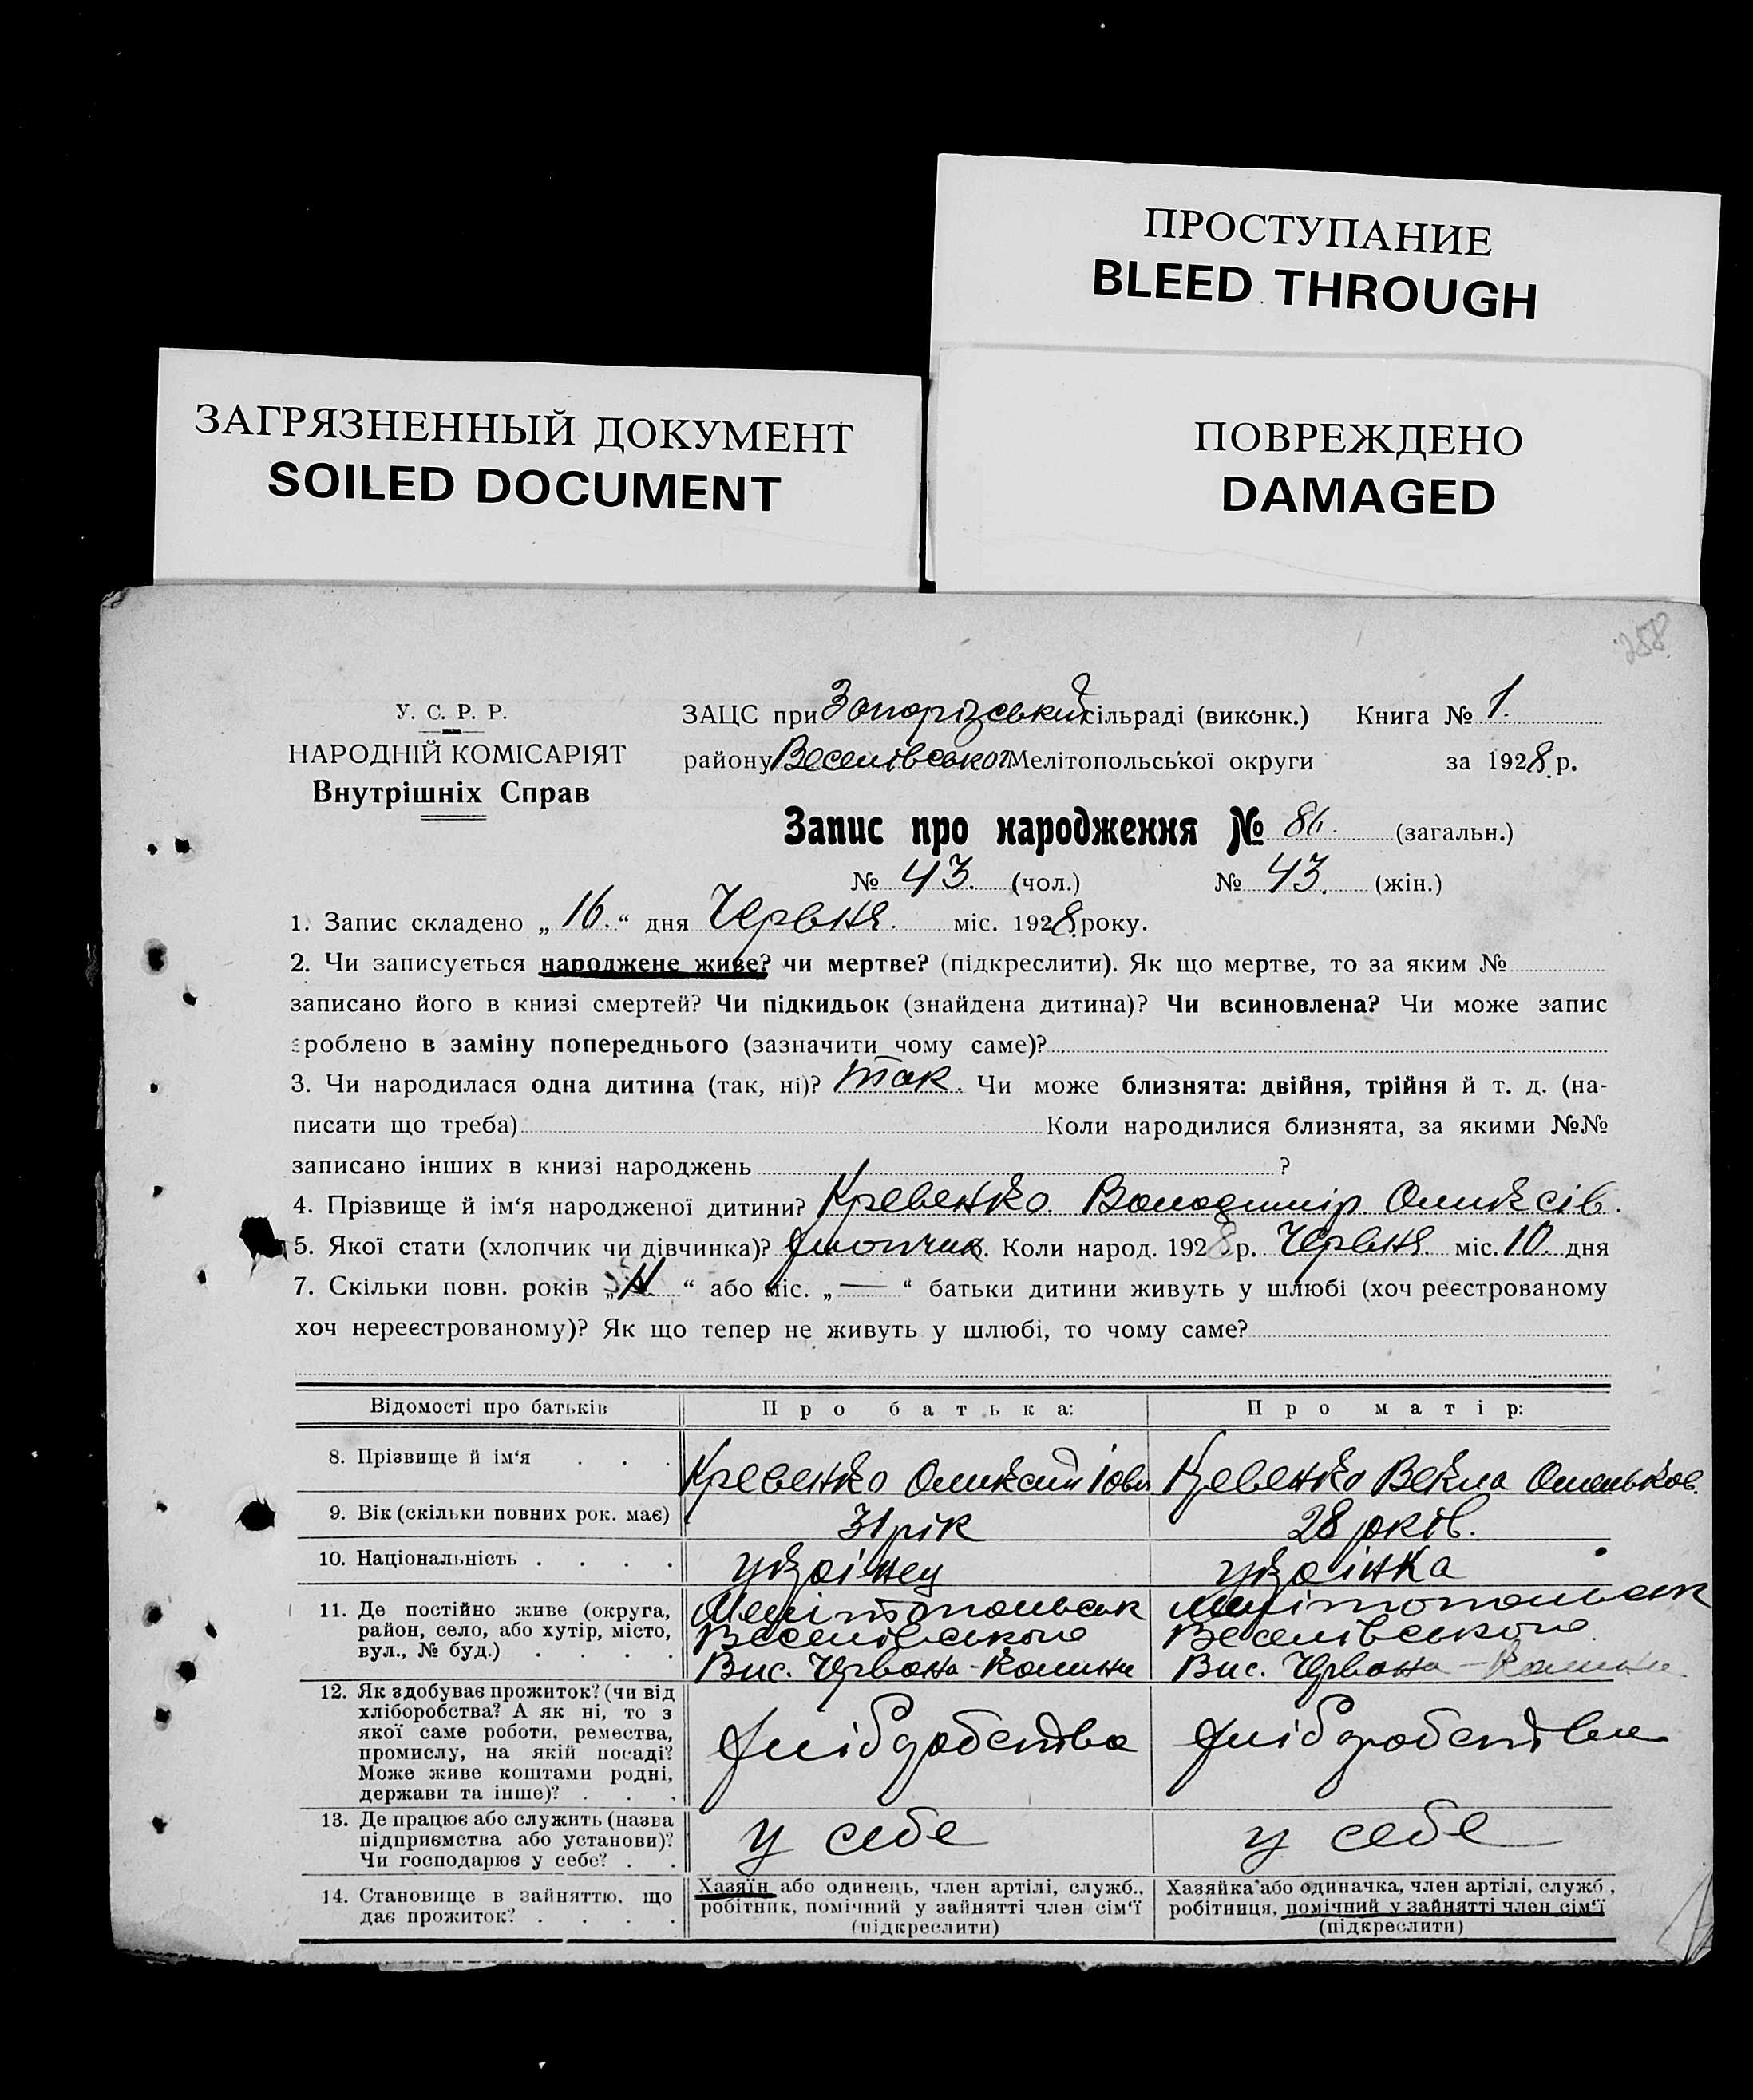 ПРОСТУПАНИЕ
BLEED THROUGH
ЗАГРЯЗНЕННЫЙ ДОКУМЕНТ
SOILED DOCUMENT
ПОВРЕЖДЕНО
DAMAGED
258
У. С. Р. Р.
НАРОДНІЙ КОМІСАРІЯТ
Внутрішніх Справ
ЗАЦС при Запорізський сільраді (виконк.) Книга № 1.
району Веселівського Мелітопольської округи за 1928 р.
Запис про народження № 86. (загальн.)
№ 43. (чол.) № 43. (жін.)
1. Запис складено „ 16. “ дня Червня. міс. 1928 року.
2. Чи записується народжене живе? чи мертве? (підкреслити). Як що мертве, то за яким №
записано його в книзі смертей? Чи підкидьок (знайдена дитина)? Чи всиновлена? Чи може запис
зроблено в заміну попереднього (зазначити чому саме)?
3. Чи народилася одна дитина (так, ні)? так. Чи може близнята: двійня, трійня й т. д. (на-
писати що треба) Коли народилися близнята, за якими №№
записано інших в книзі народжень ?
4. Прізвище й ім‘я народженої дитини? Кревенко Володимір Оликсів.
5. Якої стати (хлопчик чи дівчинка)? хлопчик. Коли народ. 1928 р. Червня міс. 10. дня
7. Скільки повн. років „ “ або міс. „ — “ батьки дитини живуть у шлюбі (хоч реєстрованому
хоч нереєстрованому)? Як що тепер не живуть у шлюбі, то чому саме?
Відомості про батьків Про батька: Про матір:
8. Прізвище й ім‘я . . . Кревенко Оликсий Кревенко Векла
9. Вік (скільки повних рок. має) 31 рік 28 років.
10. Національність . . . . українец українка
11. Де постійно живе (округа, район, село, або хутір, місто, вул., № буд.) . . . .
Мелітопольськ Мелітопольськ
Веселівського Веселівського
Вис. Червона-Калина Вис. Червона-Калина
12. Як здобуває прожиток? (чи від хліборобства? А як ні, то з якої саме роботи, ремества, промислу, на якій посаді? Може живе коштами родні, держави та інше)? . . .
хлібробства хлібробства
13. Де працює або служить (назва підприємства або установи)? Чи господарює у себе? . .
у себе у себе
14. Становище в зайняттю, що дає прожиток? . . . .
Хазяїн або одинець, член артілі, служб., робітник, помічний у зайнятті член сім‘ї (підкреслити)
Хазяйка або одиначка, член артілі, служб., робітниця, помічний у зайнятті член сім‘ї (підкреслити)